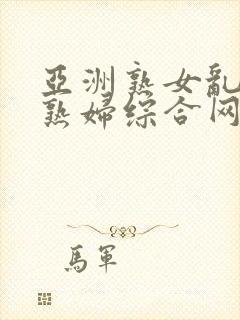 亞洲熟女亂
熟婦综合网
馬軍